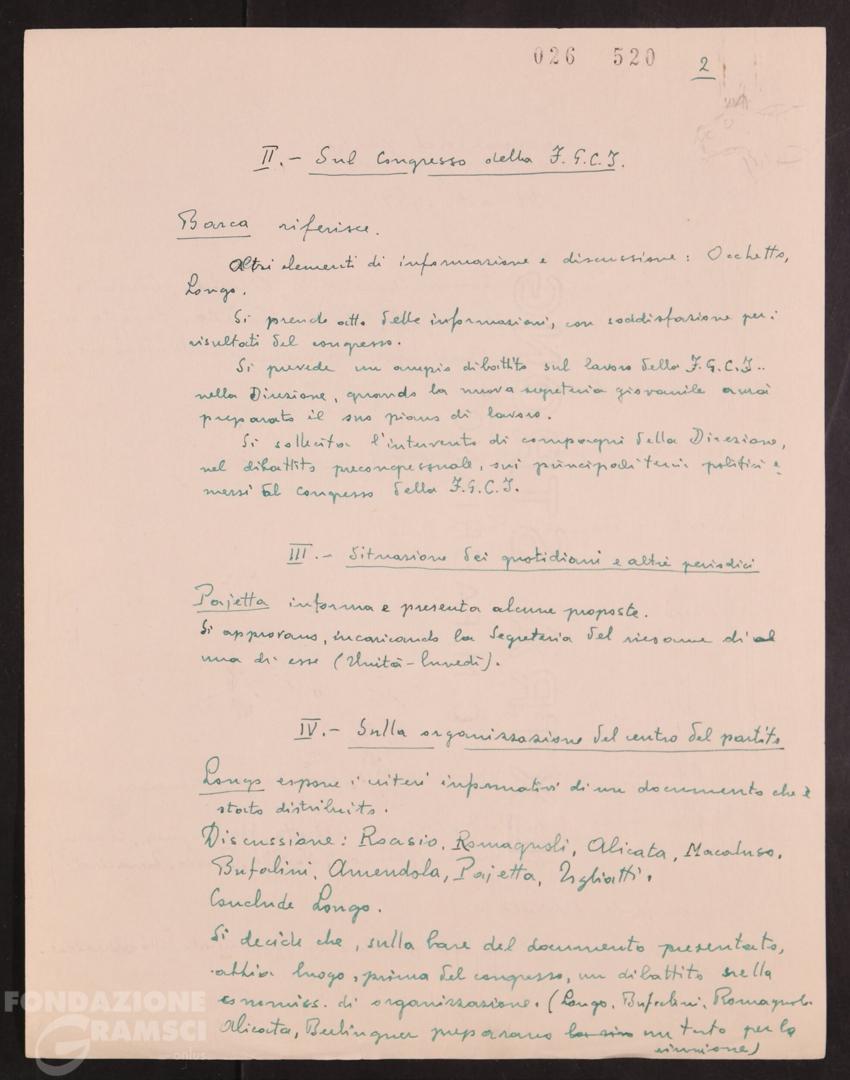 026 520 2
II.- Sul Congresso della F.G.C.I.
Barca riferisce.
Altri elementi di informazione e discussione: Occhetto,
Longo.
Si prende atto delle informazioni, con soddisfazione per i
risultati del congresso.
Si prevede un ampio dibattito sul lavoro della F.G.C.I..
nella Direzione, quando la nuova segreteria giovanile avrà
preparato il suo piano di lavoro.
Si sollecita l'intervento di compagni della Direzione,
nel dibattito precongressuale, sui principali temi politici e-
mersi al congresso della F.G.C.I.
III.- Situazione dei quotidiani e altri periodici
Pajetta informa e presenta alcune proposte.
Si approvano, incaricando la Segreteria del riesame di al
una di esse (Unità-lunedì).
IV.- Sulla organizzazione del centro del partito
Longo espone i criteri informativi di un documento che è
stato distribuito.
Discussione: Roasio, Romagnoli, Alicata, Macaluso,
Bufalini, Amendola, Pajetta, Togliatti.
Conclude Longo.
Si decide che, sulla base del documento presentato,
abbia luogo, prima del congresso, un dibattito nella
commiss. di organizzazione. (Longo, Bufalini, Romagnoli
Alicata, Berlinguer preparano un testo per la
riunione)
FONDAZIONE
GRAMSCI
onlus